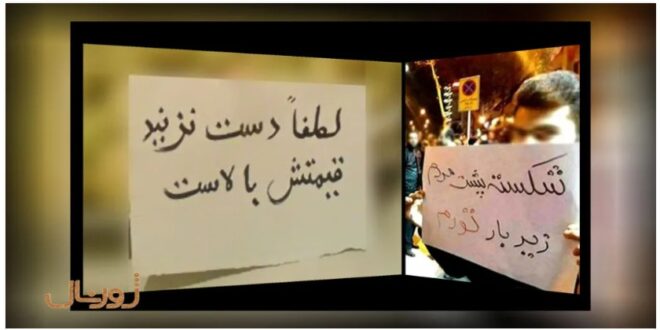 شکسته پشت مردم
زیر بار تورم
لطفاً دست نزنید
قیمتش بالاست
ژورنال